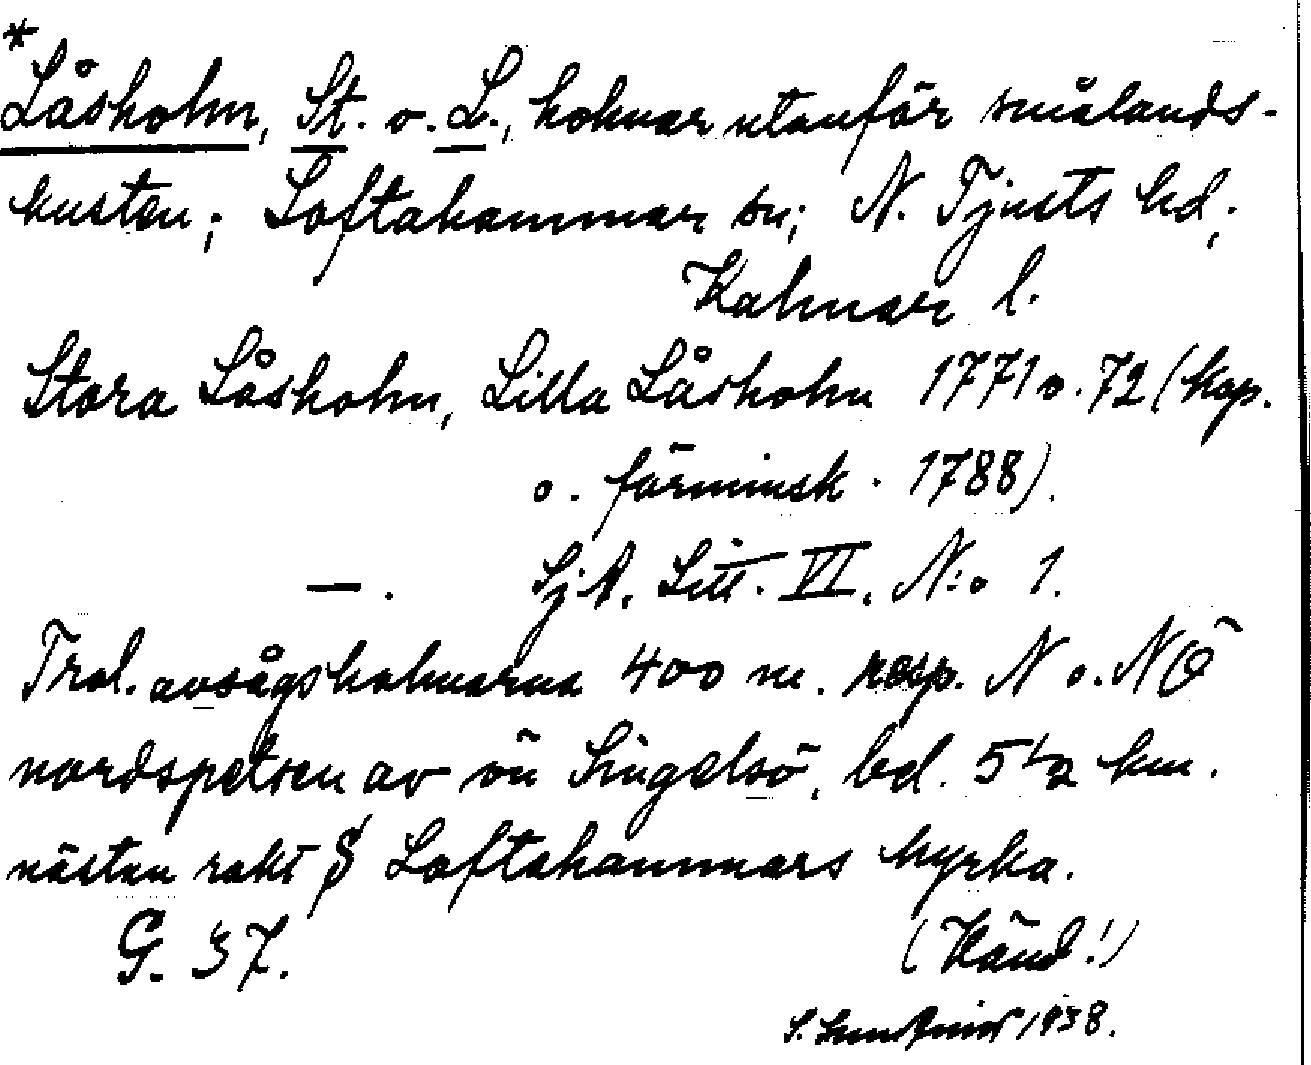 *
Låsholm, St. o. L., holmar utanför smålands-
kusten; Loftahammar sn; N. Tjusts hd,
Kalmar l.
Stora Låsholm, Lilla Låsholm 1771 o. 72 (kop.
o. förminsk. 1788).
—. Sj.A. Litt. VI. N:o 1.
Trol. avsågsholmarna 400 m. resp. N o. NÖ
nordspetsen av ön Singelsö, bel. 5 1/2 km.
nästan rakt S Loftahammars kyrka.
G. 37. (Känd!)
S. 1938.